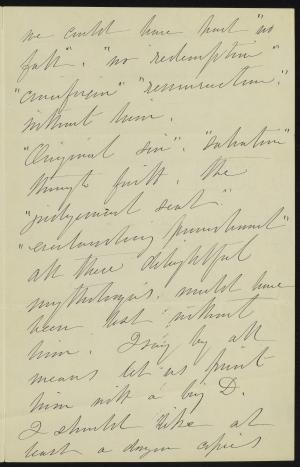 we could have had "no
fall", "no redemption"
"crucifixion" "resurrection,"
without him.
"Original sin", "salvation"
through faith, the
"judgement seat".
"everlasting punishment"
all these delightful
mythologies, would have
been lost without
him. I say by all
means let us print
him with a big D.
I should like at
least a dozen copies